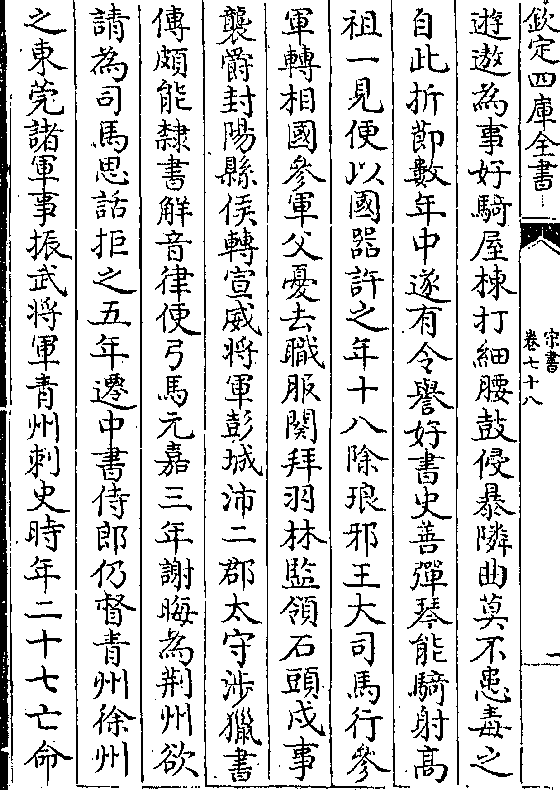 欽定四庫全書
宋書
卷七十八
一
遊遨為事好騎屋棟打細腰鼓侵暴隣曲莫不患毒之
自此折節數年中遂有令譽好書史善彈琴能騎射高
祖一見便以國器許之年十八除琅邪王大司馬行參
軍轉相國參軍父憂去職服闋拜羽林監領石頭戍事
襲爵封陽縣侯轉宣威將軍彭城沛二郡太守涉獵書
傳頗能隸書解音律便弓馬元嘉三年謝晦為荆州欲
請為司馬思話拒之五年遷中書侍郎仍督青州徐州
之東莞諸軍事振武將軍青州刺史時年二十七亡命